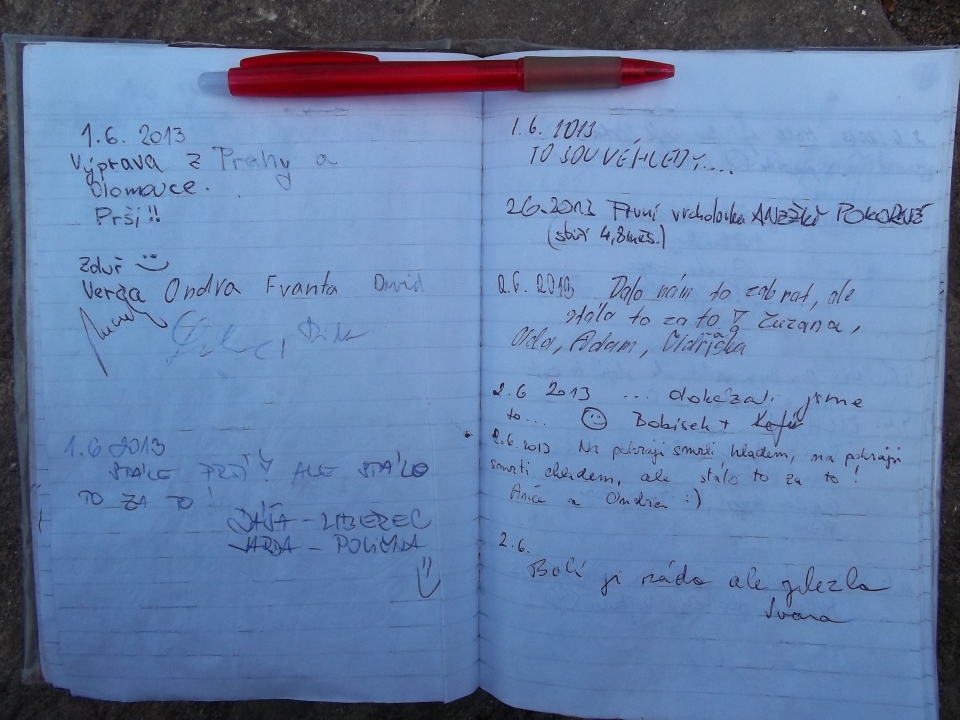 1.6. 2013
Výprava z Prahy a
Olomouce.
Prší!!
Zduř
Verča Ondra Franta David
1.6 2013
STÁLE PRŠÍ! ALE STÁLO
TO ZA TO!
DÁŠA - LIBEREC
JARDA - POLIČNA
1.6. 2013
TO SOU VÉHLEDY....
2.6.2013 První vrcholovka ANEŽKY POKORNÉ
(stáří 4,8měs.)
2.6. 2013 Dalo nám to zabrat, ale
stálo to za to! Zuzana,
Olda, Adam, Oldřiška
2.6 2013 ... dokázali jsme
to... ☺ Bobisek +
2.6.2013 Na pokraji smrti hladem, na pokraji
smrti chladem, ale stálo to za to!
Anče a Ondra :)
2.6.
Bolí ji záda ale vylezla
Ivana